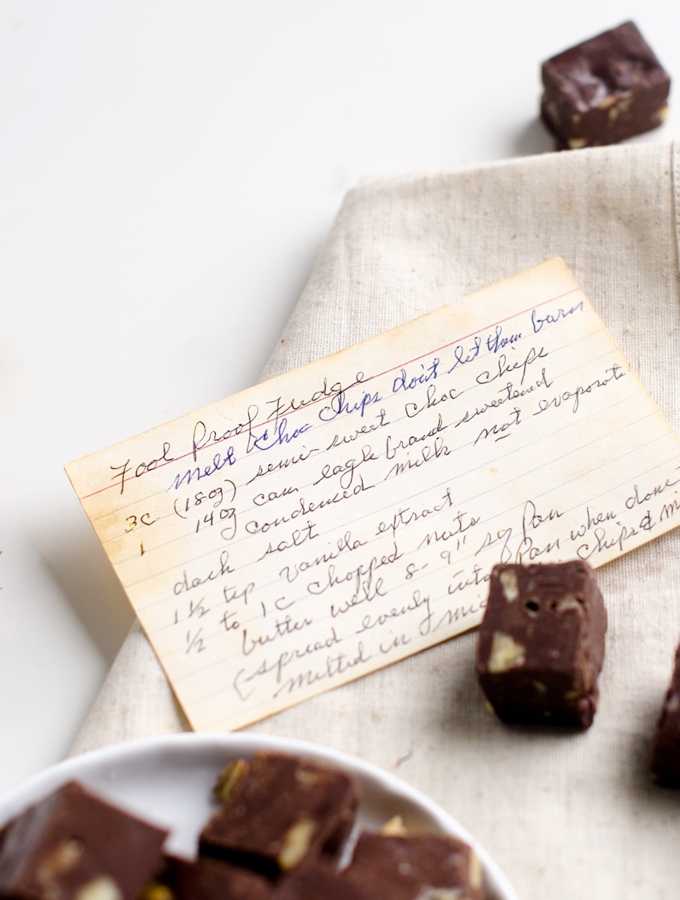 Fool Proof Fudge
melt Choc Chips don't let them burn
3C (18oz) semi-sweet choc chips
1 14oz can eagle brand sweetened
condensed milk not evaporate
dash salt
1½ tsp vanilla extract
½ to 1C chopped nuts
butter well 8-9" sq pan
(spread evenly into pan when done
melted in mic chips & mi